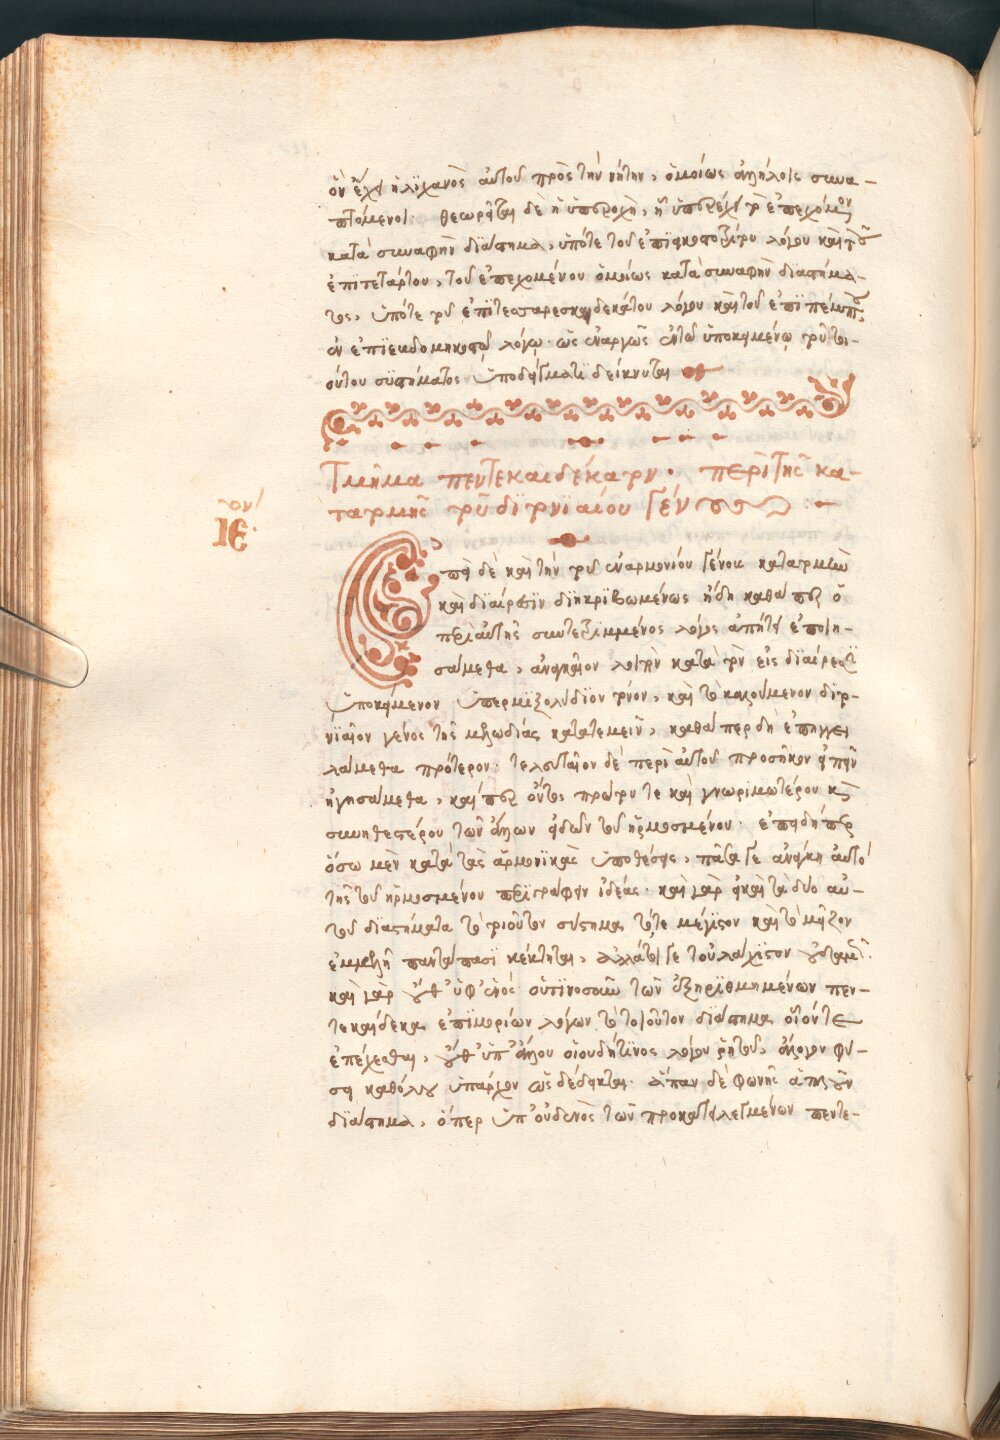 ὃν ἔχει ἡ λιχανὸς αὐτοῦ πρὸς τὴν νήτην, ὁμοίως ἀλλήλοις συνα-
πτόμενοι. θεωρεῖται δὲ ἡ ὑπεροχὴ, ᾗ ὑπερέχει τὸ ἐπεχόμενον
κατὰ συναφὴν διάστημα, ὑπότε τοῦ ἐπιεικοστοτρίτου λόγου καὶ τοῦ
ἐπιτετάρτου, τοῦ ἐπεχομένου ὁμοίως κατὰ συναφὴν διαστήμα-
τος, ὑπότε τοῦ ἐπιτεσσαρεσκαιδεκάτου λόγου καὶ τοῦ ἐπιπέμπτου,
ἐν ἐπιεβδομηκοστῷ λόγῳ. ὡς ἐναργῶς ἐν τῷ ὑποκειμένῳ τοῦ τοι-
ούτου συστήματος ὑποδείγματι δείκνυται
Τμῆμα πεντεκαιδέκατον. περὶ τῆς κα-
τατομῆς τοῦ διτονιαίου γένους
ΙΕον.
Ἐπεὶ δὲ καὶ τὴν τοῦ ἐναρμονίου γένους κατατομὴν
καὶ διαίρεσιν διηκριβωμένως ἤδη καθάπερ ὁ
περὶ αὐτῆς συντετριμμένος λόγος ἀπῄτει ἐποιη-
σάμεθα, ἀναγκαῖον λοιπὸν κατὰ τὸν εἰς διαίρεσιν
ὑποκείμενον ὑπερμιξολύδιον τόνον, καὶ τὸ καλούμενον διτο-
νιαῖον γένος τῆς μελῳδίας κατατεμεῖν, καθάπερ δὴ ἐπηγγει
λάμεθα πρότερον. τελευταῖον δὲ περὶ αὐτοῦ προσῆκον εἰπεῖν
ἡγησάμεθα, καίπερ ὄντος πρώτου τε καὶ γνωριμωτέρου καὶ
συνηθεστέρου τῶν ἄλλων εἰδῶν τοῦ ἡρμοσμένου. ἐπειδήπερ
ὅσω μὲν κατὰ τὰς ἁρμονικὰς ὑποθέσεις, πᾶσά γε ἀνάγκη αὐτὸ
τῆς τοῦ ἡρμοσμένου περιγράφειν ἰδέας. καὶ γὰρ εἰ καὶ τὰ δύο αὐ-
τοῦ διαστήματα τὸ τοιοῦτον σύστημα τό τε μέγιστον καὶ τὸ μεῖζον
ἐμμελῆ παντάπασι κέκτηται, ἀλλὰ τό γε τοὐλάχιστον οὐδαμῶς.
καὶ γὰρ οὔθ' ὑφ' ἑνὸς οὑτινοσοῦν τῶν ἐξηριθμημένων πεν-
τεκαίδεκα ἐπιμορίων λόγων τὸ τοιοῦτον διάστημα οἷόν τε
ἐπέχεσθαι, οὔθ' ὑπ' ἄλλου οἱουδήτινος λόγου ῥητοῦ, ἄλογον φύ-
σει καθόλου ὑπάρχον ὡς δέδεικται. ἅπαν δὲ φωνῆς ἁπλῶς
διάστημα, ὅπερ ὑπ' οὐδενὸς τῶν προκατειλεγμένων πεντε-